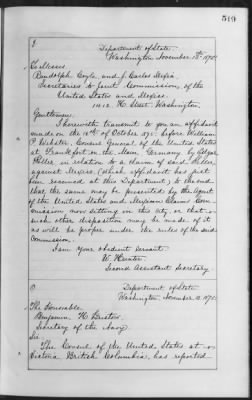 519
Department of State.
Washington November 13th 1875.
To Messrs
Randolph Coyle, and J. Carlos Mexia,
Secretaries to Joint Commission, of the
United States and Mexico.
1412. H. Street. Washington.
Gentlemen:
I herewith transmit to you an affidavit
made on the 18th of October 1875. before William
P. Webster, Consul General of the United States
at Frankfort on the Main, Germany by
in relation to a claim of said
against Mexico, (which affidavit has just
been received at this Department,) to the end
that, the same may be presented by the Agent
of the United States and Mexican Claim Com-
mission now sitting in this city, or that
such other disposition may be made of it
as will be proper under the rules of the said
Commission.
I am Your obedient servant.
W. Hunter.
Second Assistant Secretary
Department of State
Washington, November 13. 1875.
The Honorable
Benjamin H. Bristow,
Secretary of the Navy.
Sir:
The Consul of the United States at
Victoria British Columbia, has reported